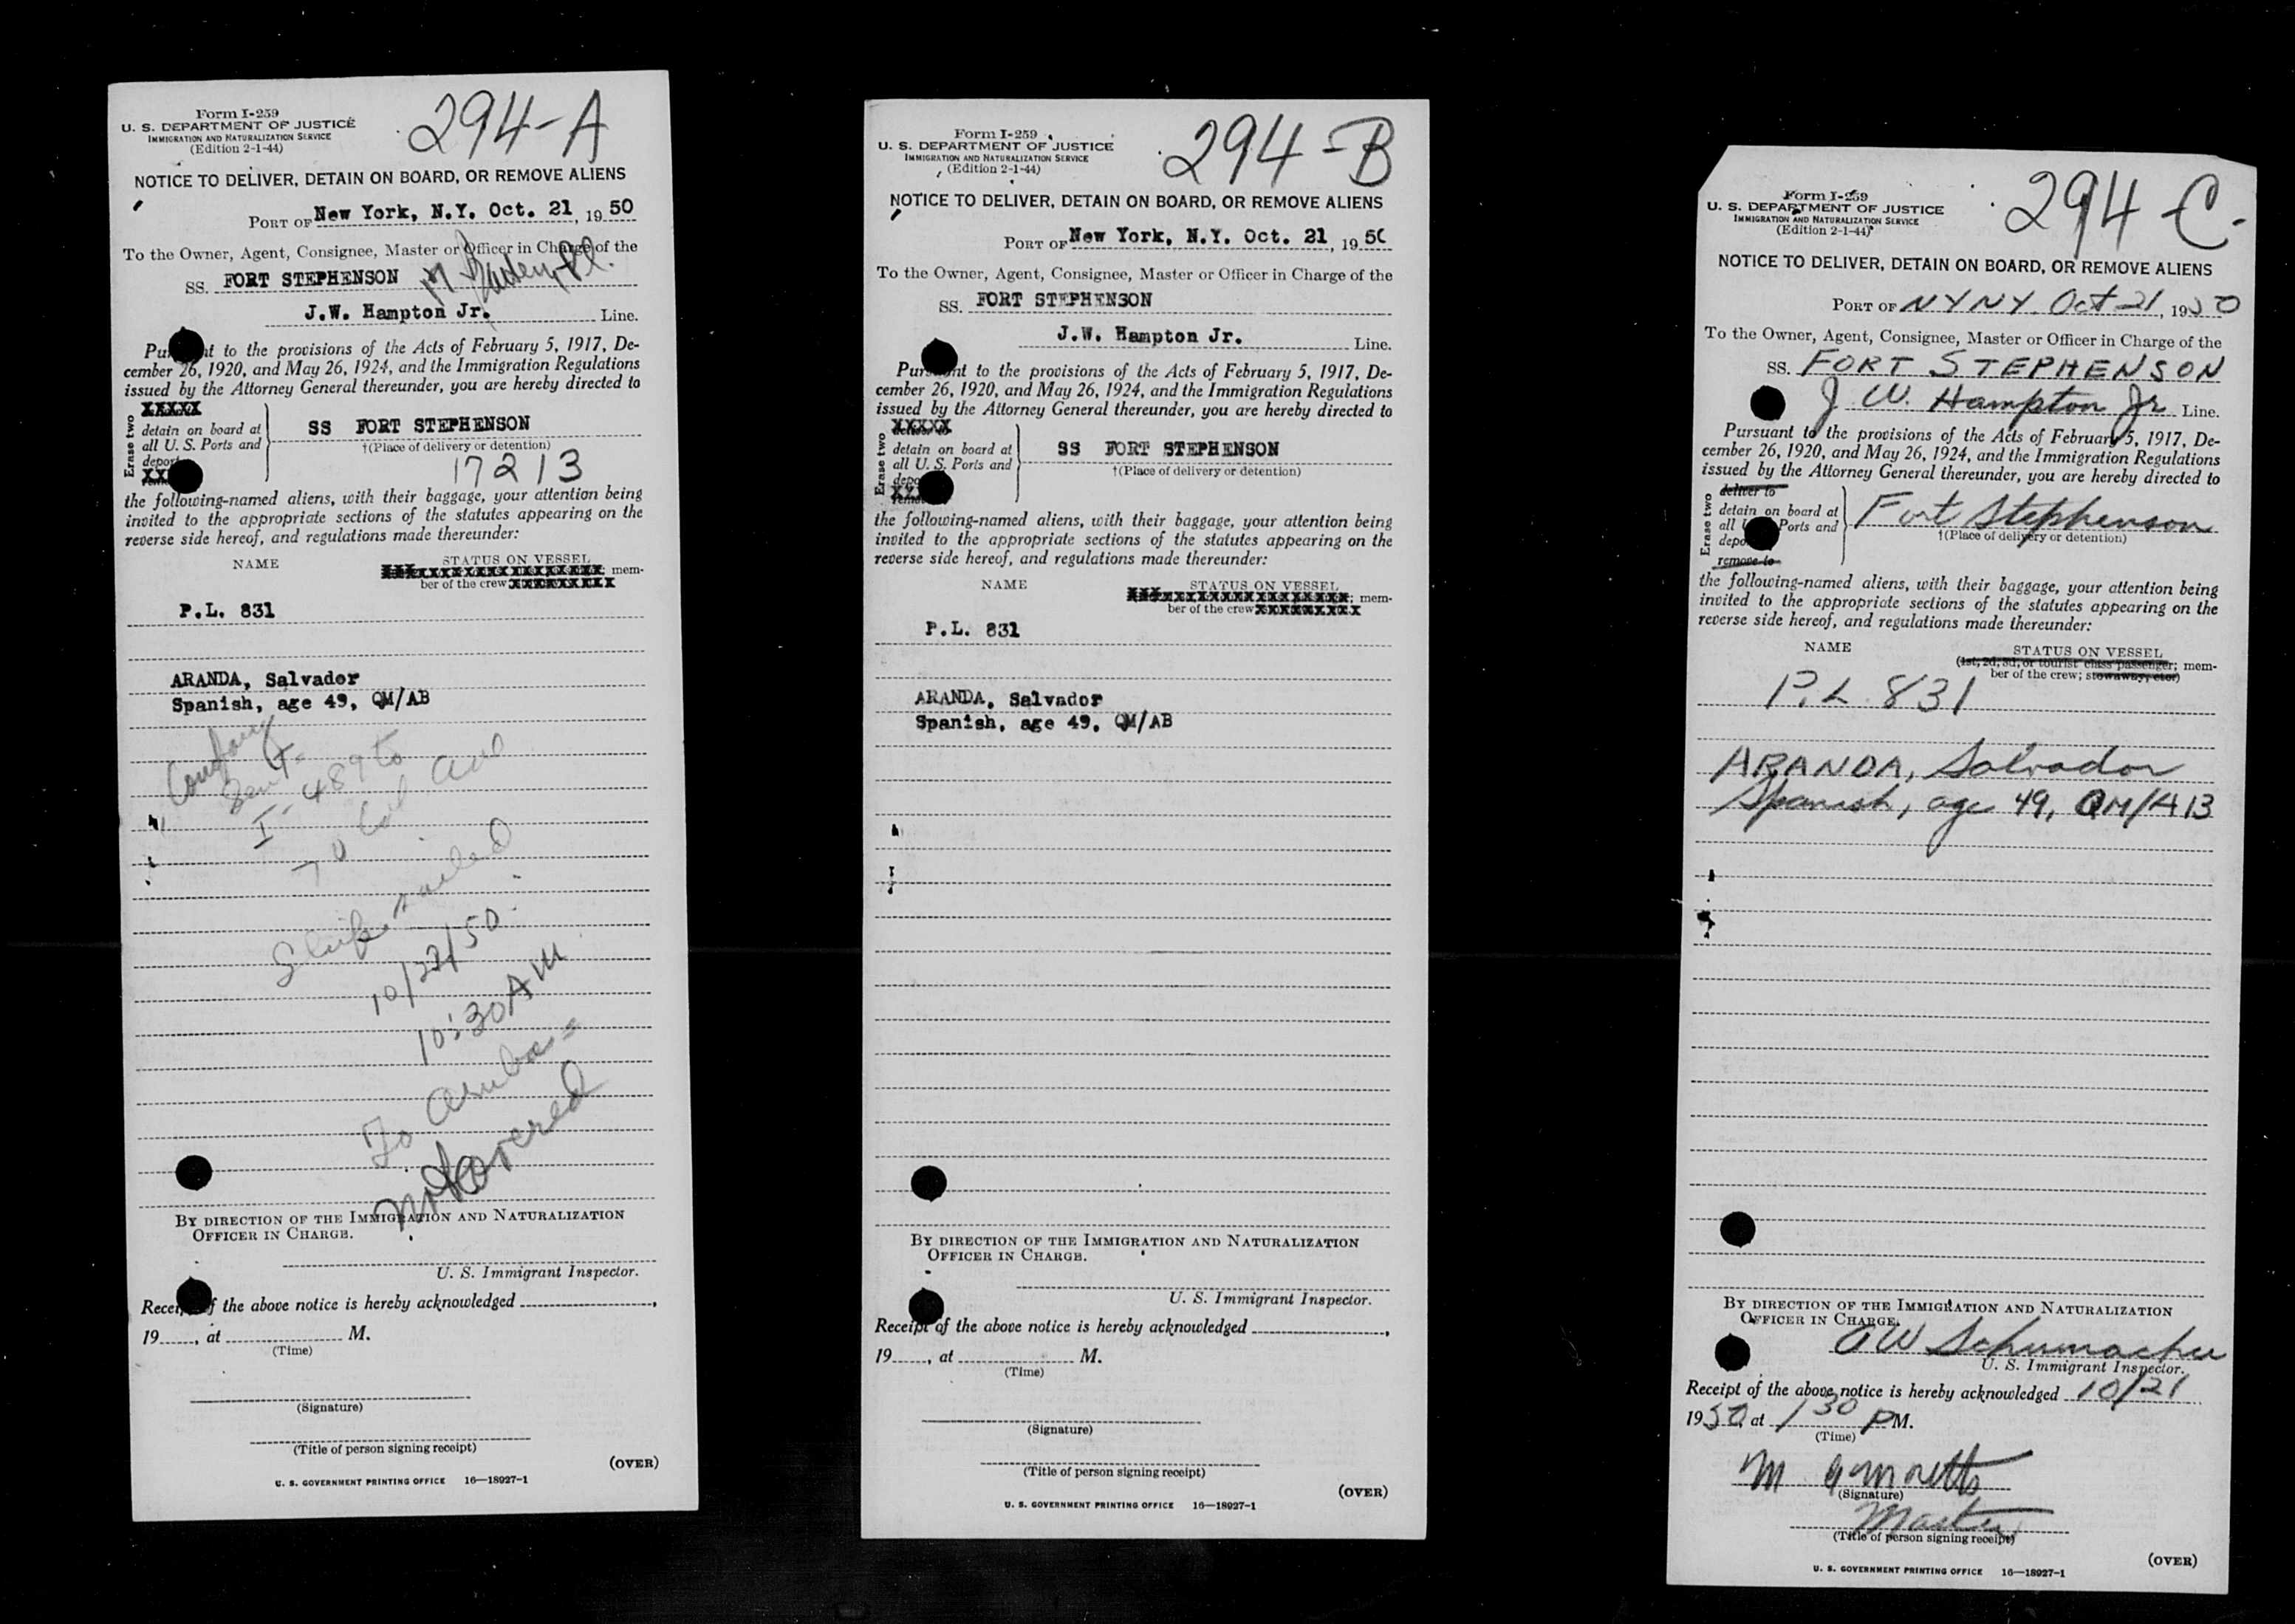 Form I-259
U. S. DEPARTMENT OF JUSTICE
IMMIGRATION AND NATURALIZATION SERVICE
(Edition 2-1-44)
294-A
NOTICE TO DELIVER, DETAIN ON BOARD, OR REMOVE ALIENS
PORT OF New York, N.Y. Oct. 21, 19 50
To the Owner, Agent, Consignee, Master or Officer in Charge of the
SS. FORT STEPHENSON
J.W. Hampton Jr. Line.
Pursuant to the provisions of the Acts of February 5, 1917, De-
cember 26, 1920, and May 26, 1924, and the Immigration Regulations
issued by the Attorney General thereunder, you are hereby directed to
Erase two
XXXXX
detain on board at
all U. S. Ports and
deport
XX
SS FORT STEPHENSON
†(Place of delivery or detention)
17213
the following-named aliens, with their baggage, your attention being
invited to the appropriate sections of the statutes appearing on the
reverse side hereof, and regulations made thereunder:
NAME STATUS ON VESSEL
XXXXXXXXXXXXXXXXXXXXX; mem-
ber of the crew XXXXXXXXX
P.L. 831
ARANDA, Salvador
Spanish, age 49, QM/AB
Company
Sent
I-489 to
70 Col Ave
Ship sailed
10/22/50
10:30 AM
To Aruba
BY DIRECTION OF THE IMMIGRATION AND NATURALIZATION
OFFICER IN CHARGE.
U. S. Immigrant Inspector.
Receipt of the above notice is hereby acknowledged ,
19 , at M.
(Time)
(Signature)
(Title of person signing receipt)
(OVER)
U. S. GOVERNMENT PRINTING OFFICE 16—18927-1
Form I-259
U. S. DEPARTMENT OF JUSTICE
IMMIGRATION AND NATURALIZATION SERVICE
(Edition 2-1-44)
294-B
NOTICE TO DELIVER, DETAIN ON BOARD, OR REMOVE ALIENS
PORT OF New York, N.Y. Oct. 21, 19 50
To the Owner, Agent, Consignee, Master or Officer in Charge of the
SS. FORT STEPHENSON
J.W. Hampton Jr. Line.
Pursuant to the provisions of the Acts of February 5, 1917, De-
cember 26, 1920, and May 26, 1924, and the Immigration Regulations
issued by the Attorney General thereunder, you are hereby directed to
Erase two
XXXXX
detain on board at
all U. S. Ports and
deport
XX
SS FORT STEPHENSON
†(Place of delivery or detention)
the following-named aliens, with their baggage, your attention being
invited to the appropriate sections of the statutes appearing on the
reverse side hereof, and regulations made thereunder:
NAME STATUS ON VESSEL
XXXXXXXXXXXXXXXXXXXXX; mem-
ber of the crew XXXXXXXXX
P.L. 831
ARANDA, Salvador
Spanish, age 49, QM/AB
BY DIRECTION OF THE IMMIGRATION AND NATURALIZATION
OFFICER IN CHARGE.
U. S. Immigrant Inspector.
Receipt of the above notice is hereby acknowledged ,
19 , at M.
(Time)
(Signature)
(Title of person signing receipt)
(OVER)
U. S. GOVERNMENT PRINTING OFFICE 16—18927-1
Form I-259
U. S. DEPARTMENT OF JUSTICE
IMMIGRATION AND NATURALIZATION SERVICE
(Edition 2-1-44)
294 C-
NOTICE TO DELIVER, DETAIN ON BOARD, OR REMOVE ALIENS
PORT OF NYNY. Oct 21, 1950
To the Owner, Agent, Consignee, Master or Officer in Charge of the
SS. FORT STEPHENSON
J. W. Hampton Jr Line.
Pursuant to the provisions of the Acts of February 5, 1917, De-
cember 26, 1920, and May 26, 1924, and the Immigration Regulations
issued by the Attorney General thereunder, you are hereby directed to
Erase two
deliver to
detain on board at
all U. S. Ports and
deport
remove to
Fort Stephenson
†(Place of delivery or detention)
the following-named aliens, with their baggage, your attention being
invited to the appropriate sections of the statutes appearing on the
reverse side hereof, and regulations made thereunder:
NAME STATUS ON VESSEL
(1st, 2d, 3d, or tourist class passenger; mem-
ber of the crew; stowaway, etc.)
P.L. 831
ARANDA, Salvador
Spanish, age 49, QM/AB
BY DIRECTION OF THE IMMIGRATION AND NATURALIZATION
OFFICER IN CHARGE.
OW Schumacher
U. S. Immigrant Inspector.
Receipt of the above notice is hereby acknowledged 10/21
1950, at 1 30 PM.
(Time)
M
(Signature)
Master
(Title of person signing receipt)
(OVER)
U. S. GOVERNMENT PRINTING OFFICE 16—18927-1